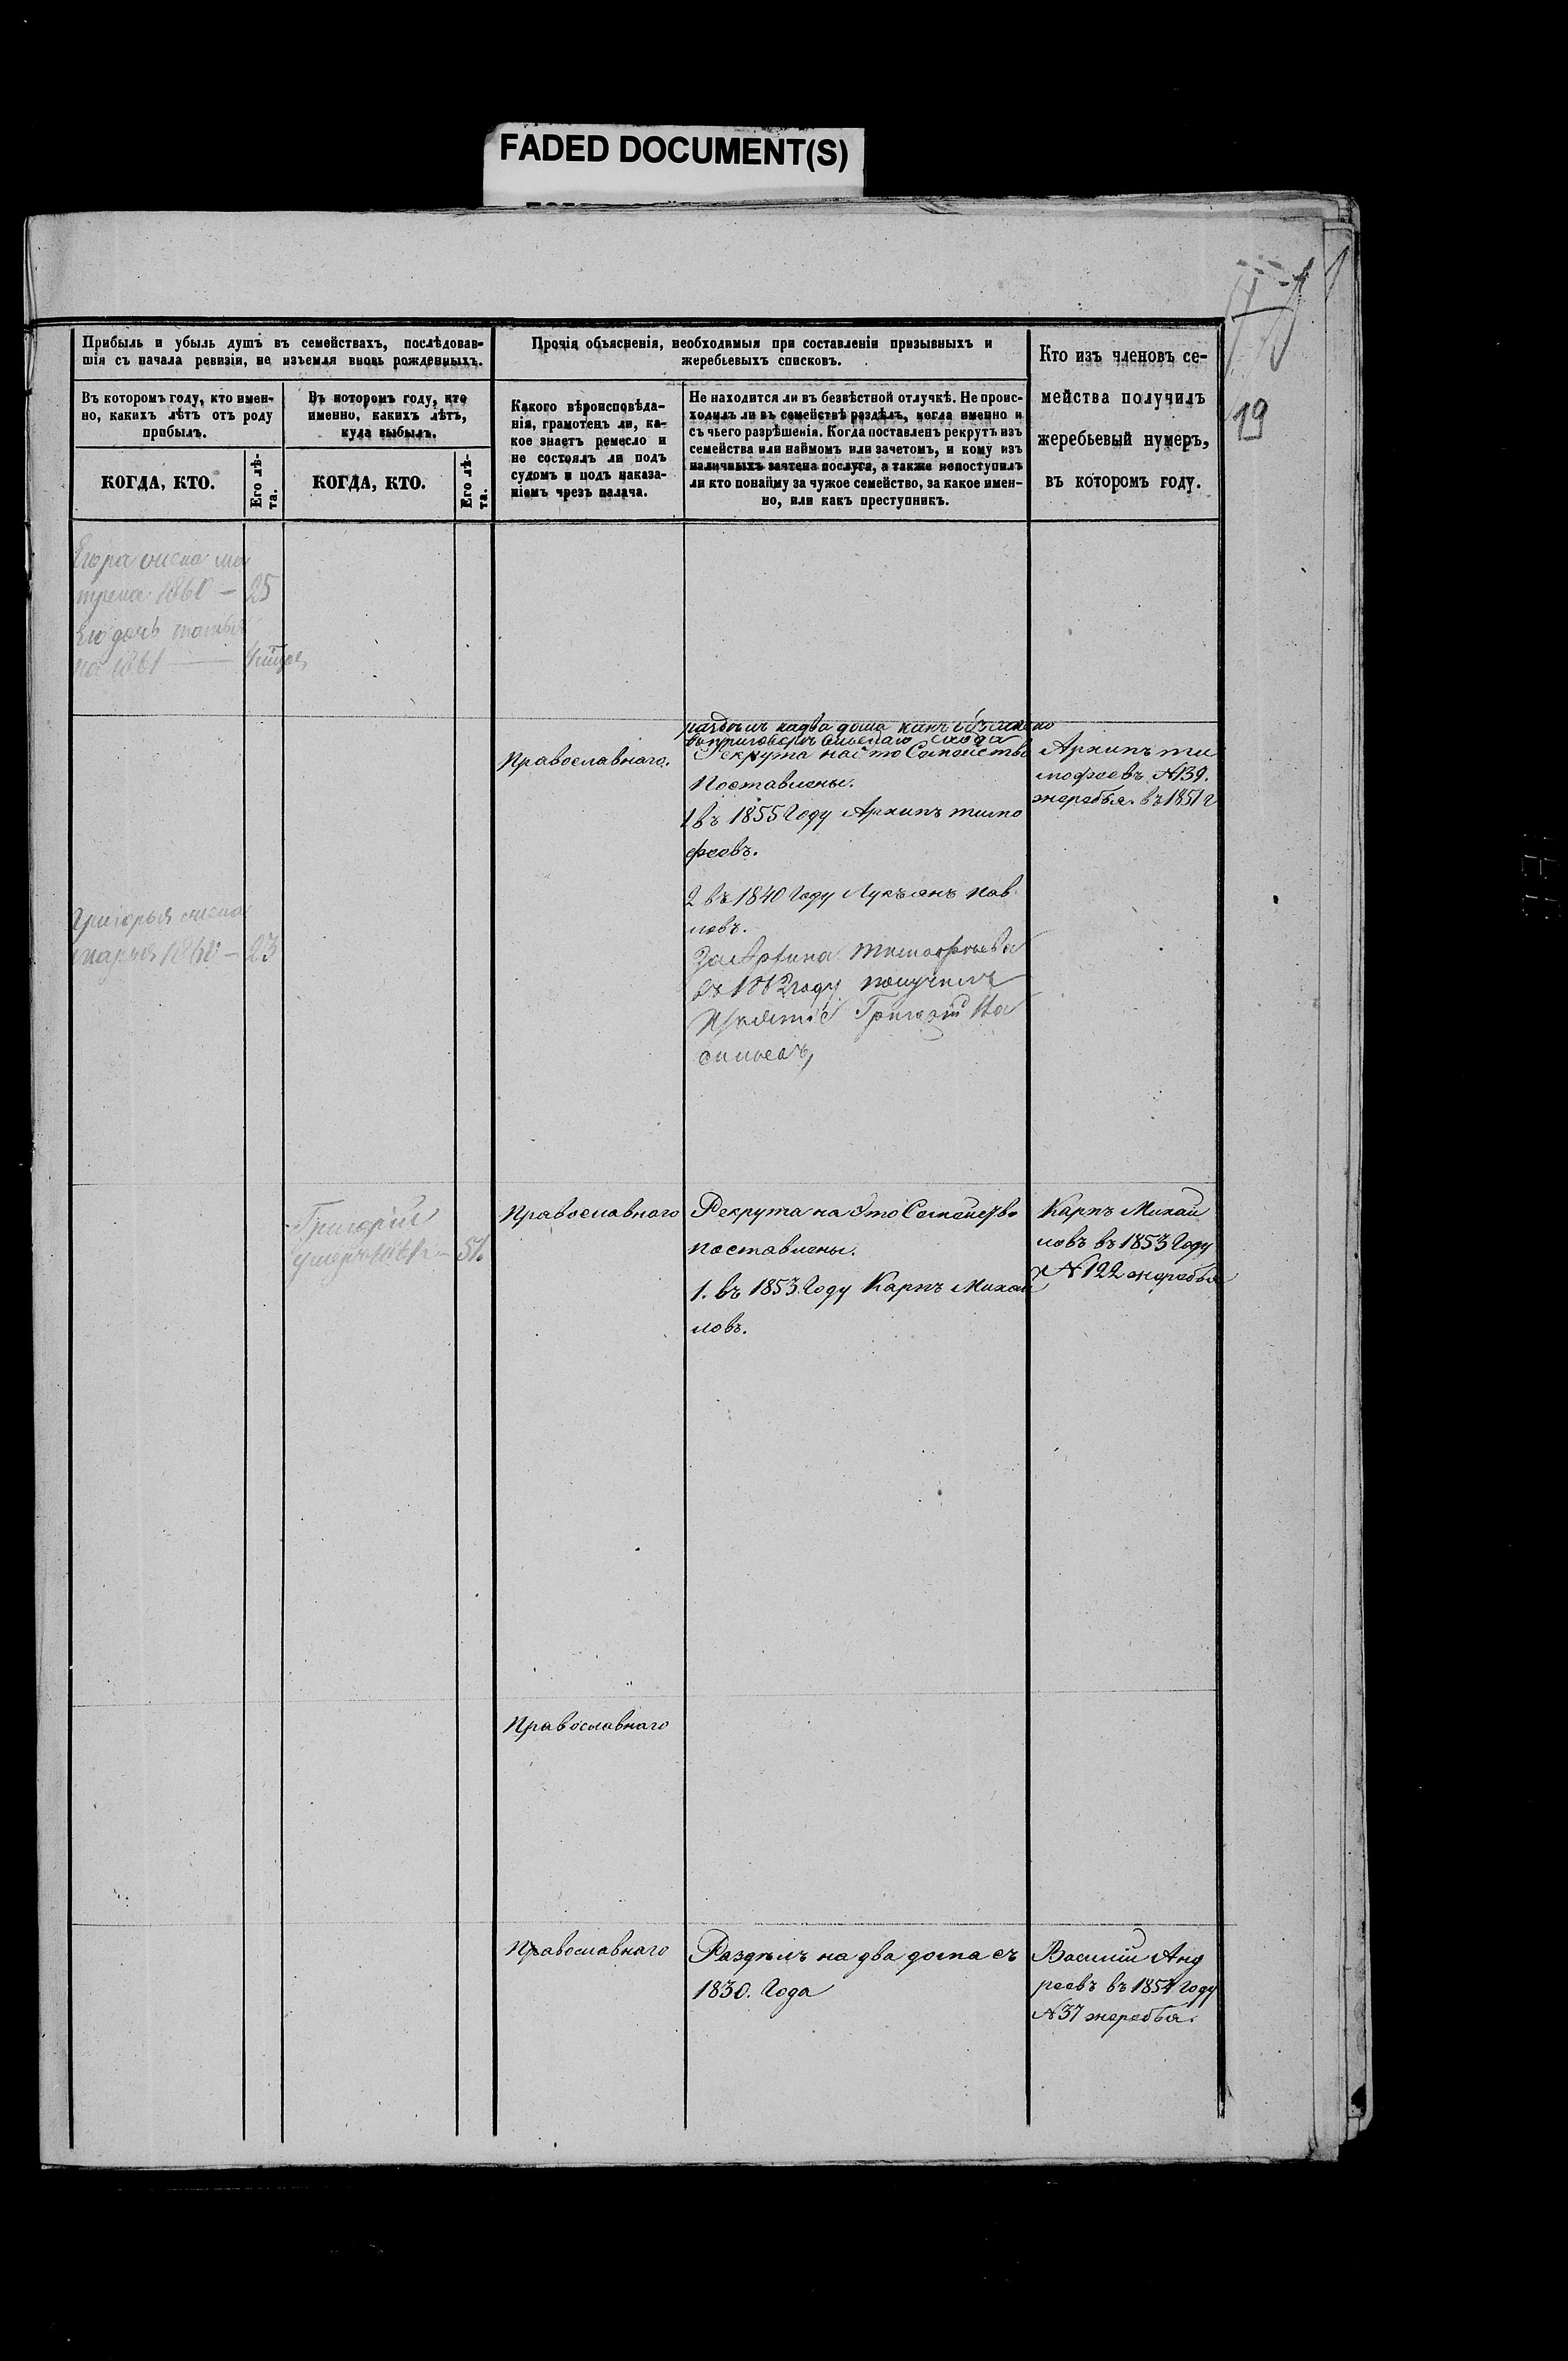 FADED DOCUMENT(S)
Прибыль и убыль душъ въ семействахъ, послѣдовав-
шія съ начала ревизіи, не изъемля вновь рожденныхъ.
Прочія объясненія, необходимыя при составленіи призывныхъ и
жеребьевыхъ списковъ.
Кто изъ членовъ се-
мейства получилъ
жеребьевый нумеръ,
въ которомъ году.
19
Въ которомъ году, кто имен-
но, какихъ лѣтъ отъ роду
прибылъ.
Въ которомъ году, кто
именно, какихъ лѣтъ,
куда выбылъ.
Какого вѣроисповѣда-
нія, грамотенъ ли, ка-
кое знаетъ ремесло и
не состоялъ ли подъ
судомъ и подъ наказа-
ніемъ чрезъ палача.
Не находится ли въ безвѣстной отлучкѣ. Не проис-
ходилъ ли въ семействѣ раздѣлъ, когда именно и
съ чьего разрѣшенія. Когда поставленъ рекрутъ изъ
семейства или наймомъ или зачетомъ, и кому изъ
наличныхъ зачтена послуга, а также непоступилъ
ли кто понайму за чужое семейство, за какое имен-
но, или какъ преступникъ.
КОГДА, КТО.
Его лѣ-
та.
КОГДА, КТО.
Его лѣ-
та.
Егора жена ма
трена 1860 — 25
Его дочь татья
на 1861 —
раздѣлъ на два дома
Православнаго.
Рекрута на это Семейство
поставлены.
1 въ 1855 Году Архипъ тимо
феовъ.
2 въ 1840 Году Лукъянъ пав
ловъ.
За Архипа Тимофеева
въ 1862 году получилъ
Григорій Ва
сильевъ,
Архипъ ти
мофеевъ N 139.
жеребья. въ 1851 г
Григорья жена
марья 1860 — 23
Григорій
умеръ 1861 г — 51.
Православнаго
Рекрута на это Семейство
поставлены.
1. въ 1853. Году Карпъ Михай
ловъ.
Карпъ Михай
ловъ въ 1853 Году
N 122 жеребья
Православнаго
Православнаго
Раздѣлъ на два дома съ
1830. Года
Василій Анд
реевъ въ 1854 Году
N 37 жеребья.